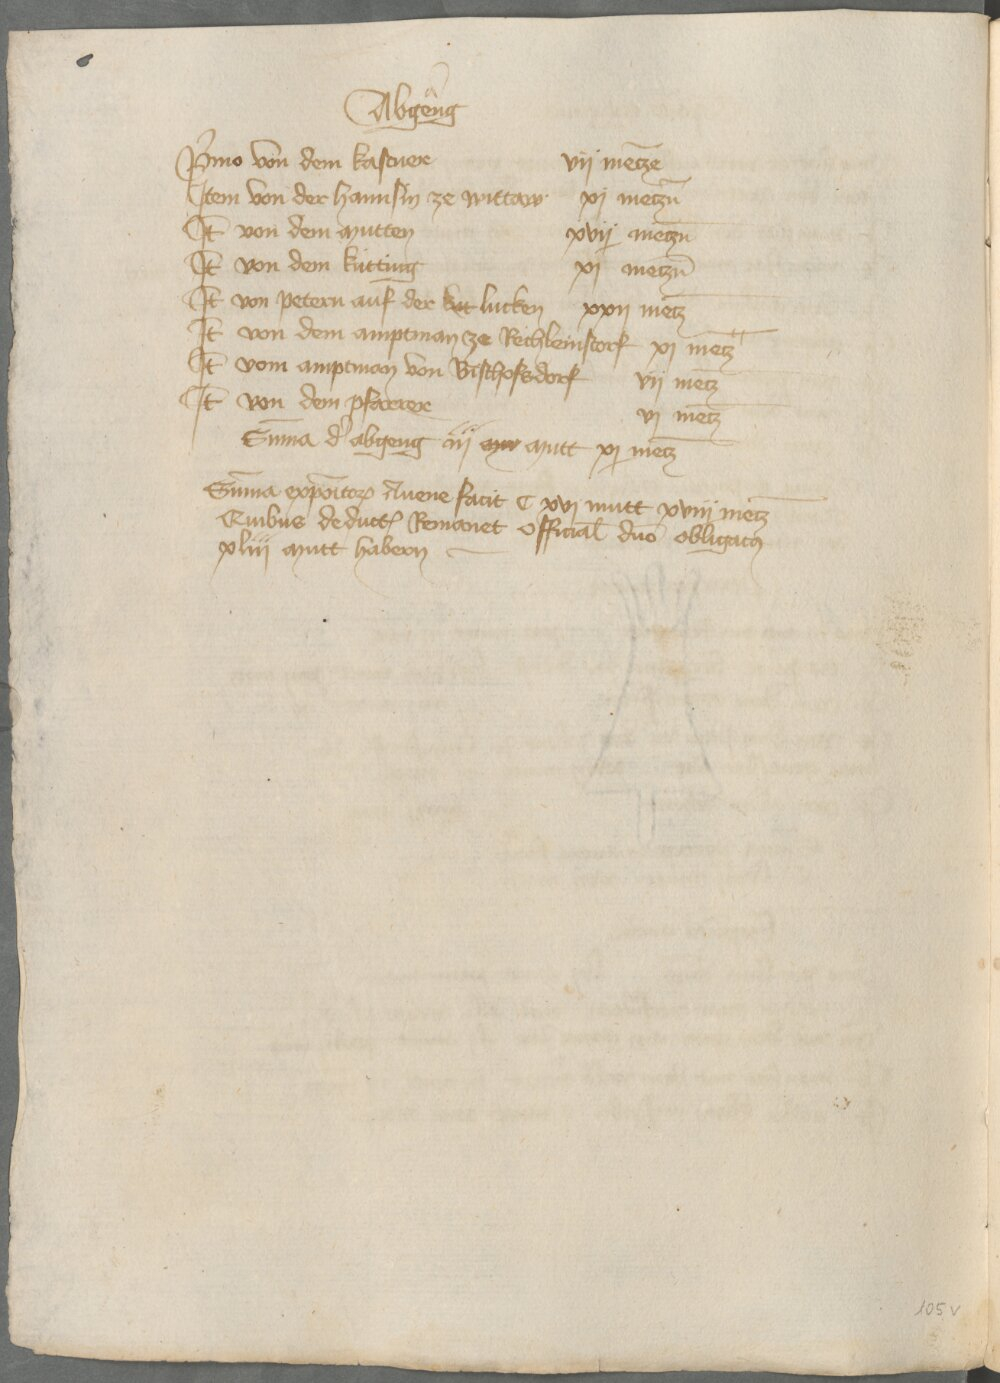 Abgeng
Primo von dem kastner vij metze
Item von der hannsin ze wittaw xj metzn
It von dem mutten xvij metzn
It von dem kutting xj metzn
It von petern auf der lucken xxij metz
It von dem amptman ze Rechleinstorf xj metz
It vom amptman von Bischofsdorf vij metz
It von dem pfarrer vj metz
Summa d abgeng iij mutt xj metz
Summa expoitor Avene facit C xvj mutt xviij metz
Quibus deduct Remanet Official dno obligatus
xliij mutt habern
105v